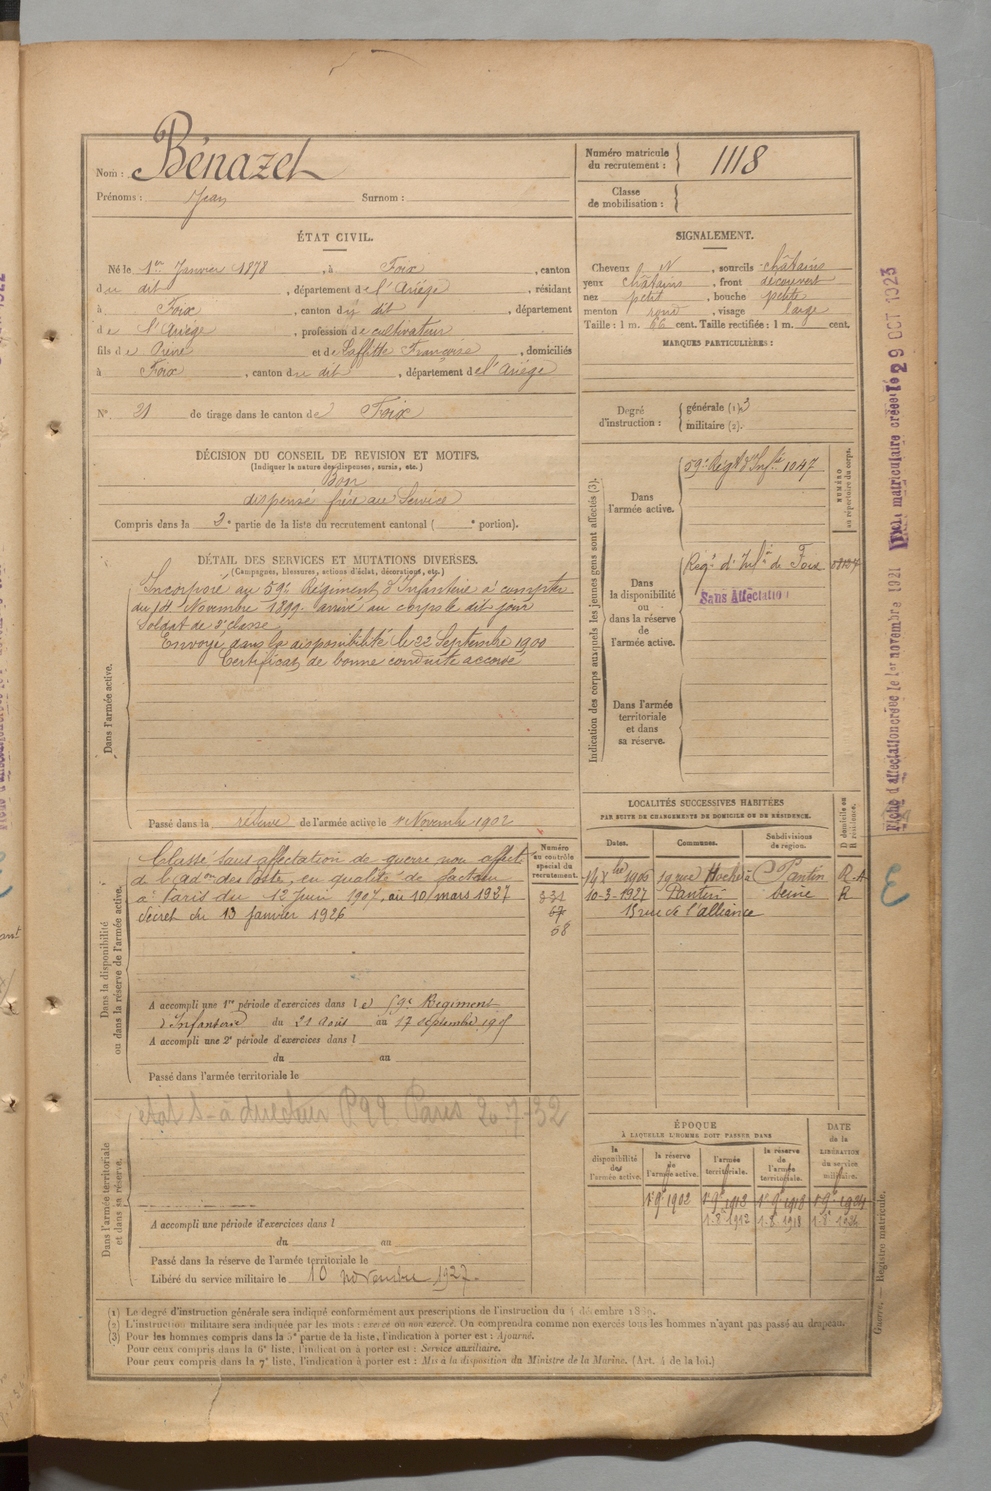 Nom : Bénazet
Prénoms : Jean Surnom :
Numéro matricule du recrutement : 1118
Classe de mobilisation :
ÉTAT CIVIL.
Né le 1er Janvier 1878, à Foix, canton
du dit, département de l'Ariège, résidant
à Foix, canton du dit, département
de l'Ariège, profession de cultivateur
fils de Pierre et de Laffitte Françoise, domiciliés
à Foix, canton du dit, département de l'Ariège
N° 21 de tirage dans le canton de Foix
SIGNALEMENT.
Cheveux N, sourcils châtains
yeux châtains, front découvert
nez petit, bouche petite
menton rond, visage large
Taille : 1 m. 66 cent. Taille rectifiée : 1 m. cent.
MARQUES PARTICULIÈRES :
Degré d'instruction : générale (1) 3
militaire (2).
DÉCISION DU CONSEIL DE REVISION ET MOTIFS.
(Indiquer la nature des dispenses, sursis, etc.)
Bon
dispensé frère au Service
Compris dans la 2e partie de la liste du recrutement cantonal ( e portion).
DÉTAIL DES SERVICES ET MUTATIONS DIVERSES.
(Campagnes, blessures, actions d'éclat, décorations, etc.)
Dans l'armée active.
Incorporé au 59e Régiment d'Infanterie à compter
du 14 Novembre 1899. arrivé au corps le dit jour
Soldat de 2e classe
Envoyé dans la disponibilité le 22 Septembre 1900
Certificat de bonne conduite accordé
Passé dans la réserve de l'armée active le 1er Novembre 1902
Indication des corps auxquels les jeunes gens sont affectés (3).
NUMÉRO au répertoire du corps.
Dans l'armée active.
59e Régt d'Infie 1047
Dans la disponibilité ou dans la réserve de l'armée active.
Régt d'Infie de Foix
Sans Affectation
Dans l'armée territoriale et dans sa réserve.
Dans la disponibilité ou dans la réserve de l'armée active.
Classé sans affectation de guerre non affecté
de l'adon des Poste, en qualité de facteur
à Paris du 12 Juin 1907, au 10 mars 1927
décret du 13 janvier 1926
Numéro au contrôle spécial du recrutement.
331
67
68
A accompli une 1re période d'exercices dans le 59e Régiment
d'Infanterie du 21 Août au 17 septembre 1905
A accompli une 2e période d'exercices dans l
du au
Passé dans l'armée territoriale le
LOCALITÉS SUCCESSIVES HABITÉES
PAR SUITE DE CHANGEMENTS DE DOMICILE OU DE RÉSIDENCE.
Dates. Communes. Subdivisions de région. D domicile ou R résidence.
1906 19 rue Hoche à Pantin
10-3-1927 Pantin Seine R
15 rue de l'alliance
Dans l'armée territoriale et dans sa réserve.
état S- à directeur Paris 20-7-32
A accompli une période d'exercices dans l
du au
Passé dans la réserve de l'armée territoriale le
Libéré du service militaire le 10 novembre 1927.
ÉPOQUE
À LAQUELLE L'HOMME DOIT PASSER DANS
la disponibilité de l'armée active.
la réserve de l'armée active.
l'armée territoriale.
la réserve de l'armée territoriale.
DATE de la LIBÉRATION du service militaire.
1er 9e 1902 1er 9e 1912 1er 9e 1918 1er 9e 1924
1.8e 1912 1.8e 1918 1.8e 1924
(1) Le degré d'instruction générale sera indiqué conformément aux prescriptions de l'instruction du 4 décembre 1889.
(2) L'instruction militaire sera indiquée par les mots : exercé ou non exercé. On comprendra comme non exercés tous les hommes n'ayant pas passé au drapeau.
(3) Pour les hommes compris dans la 5e partie de la liste, l'indication à porter est : Ajourné.
Pour ceux compris dans la 6e liste, l'indication à porter est : Service auxiliaire.
Pour ceux compris dans la 7e liste, l'indication à porter est : Mis à la disposition du Ministre de la Marine. (Art. 4 de la loi.)
Guerre. — Registre matricule.
Fiche d'affectation créée le 1er novembre 1921 Fiche matriculaire créée le 29 OCT 1923